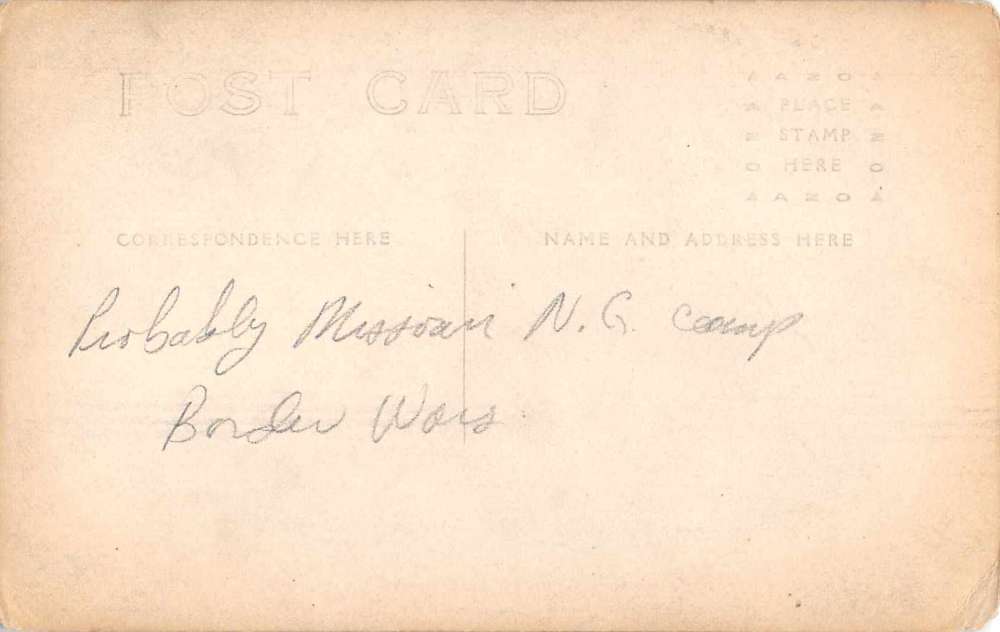 POST CARD
AZO
PLACE
STAMP
HERE
AZO
CORRESPONDENCE HERE
NAME AND ADDRESS HERE
Probably Missouri N.G. camp
Border Wars